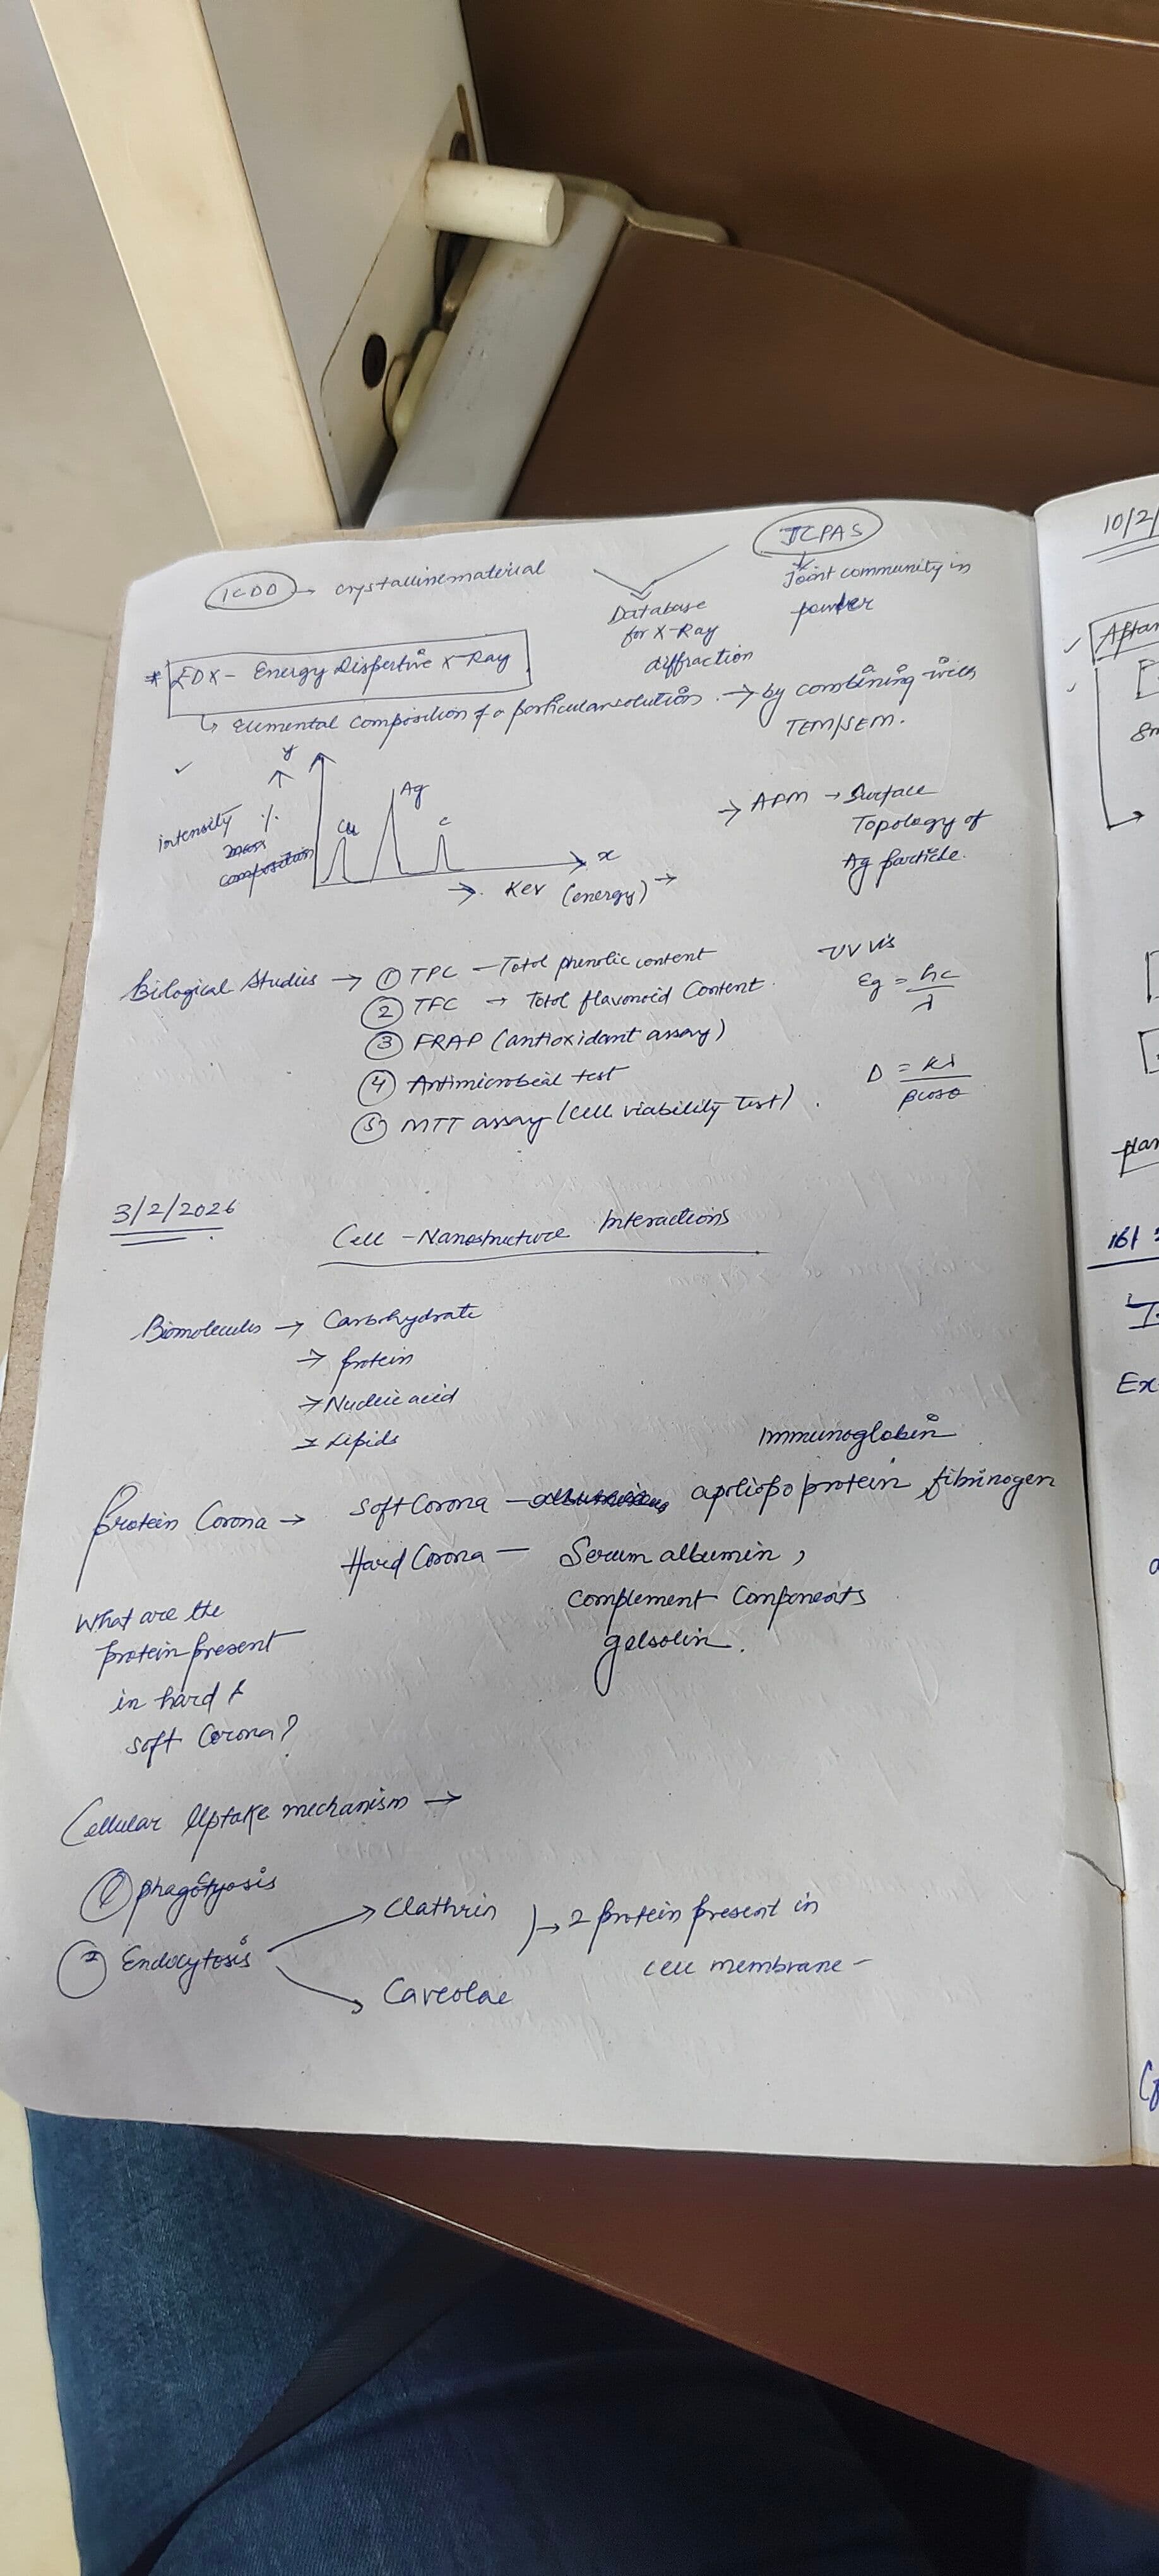 ICDD → crystalline material
JCPAS
Joint community in
powder
Database
for X-Ray
diffraction
* EDX - Energy Dispertive X-Ray
↳ Elemental composition of a particular solution. → by combining with
TEM/SEM.
y
intensity %
mass
composition
Cu
Ag
C
x
→ Kev (energy) →
→ AFM → Surface
Topology of
Ag particle.
Biological Studies → ① TPC - Total phenolic content
② TFC → Total flavonoid Content.
③ FRAP (antioxidant assay)
④ Antimicrobial test
⑤ MTT assay (cell viability Test).
UV vis
Eg = hc/λ
D = kλ/βcosθ
3/2/2026
Cell - Nanostructure Interactions
Biomolecules → Carbohydrate
→ protein
→ Nucleic acid
→ Lipids
Immunoglobin
Protein Corona → Soft Corona - apoliopo protein, fibrinogen
Hard Corona - Serum albumin,
complement components
gelsolin.
What are the
protein present
in hard &
soft Corona?
Cellular Uptake mechanism →
① phagotyosis
② Endocytosis
Clathrin
Caveolae
→ 2 protein present in
cell membrane -
10/2/
16/
Ex
plan